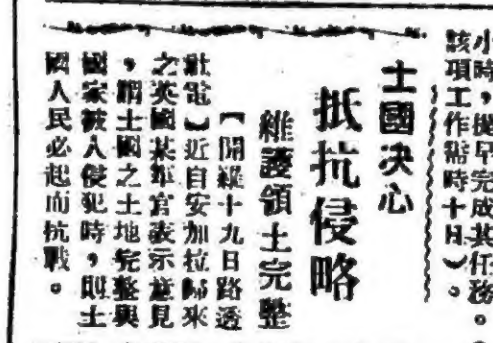 小時，提早完成其任務。
該項工作需時十日）。
士國決心
抵抗侵略
維護領土完整
【開羅十九日路透
社電】近自安加拉歸來
之英國某軍官表示意見
，謂士國之土地完整與
國家被人侵犯時，則士
國人民必起而抗戰。